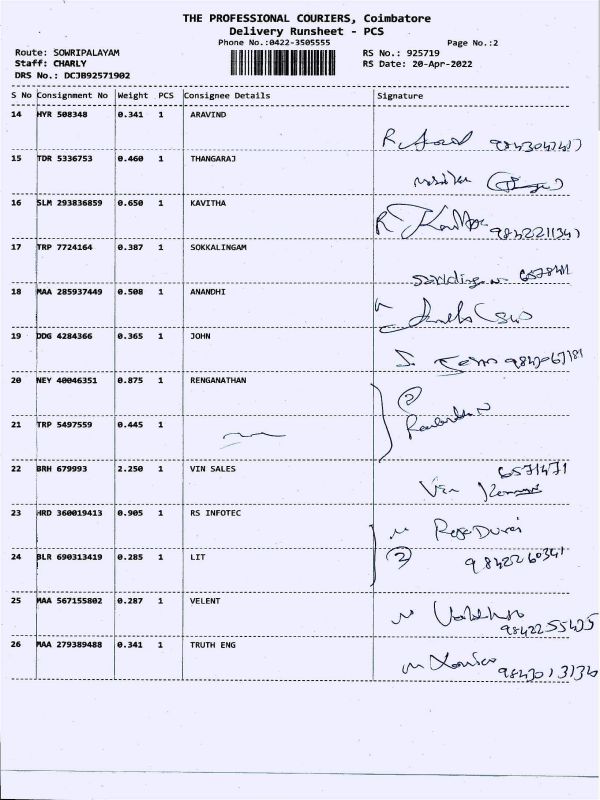 THE PROFESSIONAL COURIERS, Coimbatore
Delivery Runsheet - PCS
Phone No.:0422-3505555 Page No.:2
Route: SOWRIPALAYAM RS No.: 925719
Staff: CHARLY RS Date: 20-Apr-2022
DRS No.: DCJB92571902
S No Consignment No Weight PCS Consignee Details Signature
14 HYR 508348 0.341 1 ARAVIND
15 TDR 5336753 0.460 1 THANGARAJ
16 SLM 293836859 0.650 1 KAVITHA
17 TRP 7724164 0.387 1 SOKKALINGAM
18 MAA 285937449 0.508 1 ANANDHI
19 DDG 4284366 0.365 1 JOHN
20 NEY 40046351 0.875 1 RENGANATHAN
2
21 TRP 5497559 0.445 1
22 BRH 679993 2.250 1 VIN SALES 6571471
23 HRD 360019413 0.905 1 RS INFOTEC
24 BLR 690313419 0.285 1 LIT 2 9842260341
25 MAA 567155802 0.287 1 VELENT
26 MAA 279389488 0.341 1 TRUTH ENG